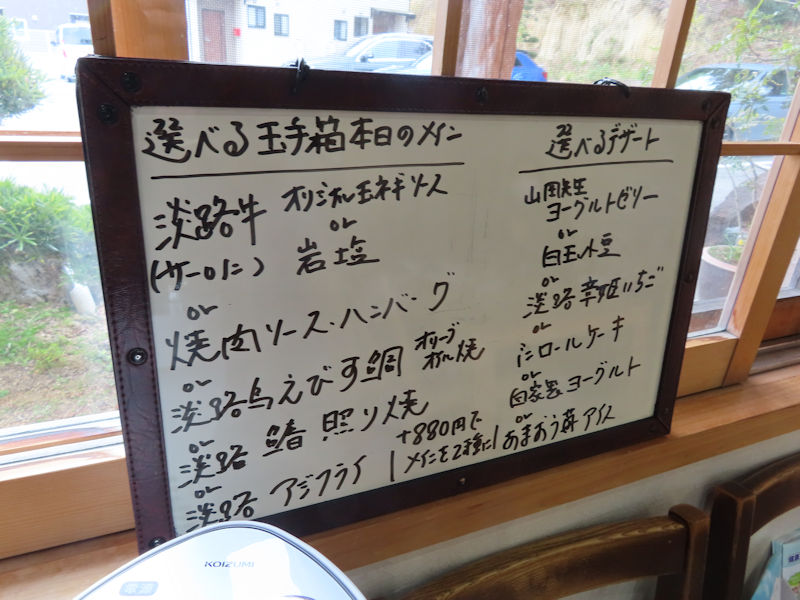 選べる玉手箱本日のメイン
淡路牛 オリジナル玉ネギソース
or
(サーロイン) 岩塩
or
焼肉ソース・ハンバーグ
or
淡路島えびす鯛 オリーブオイル焼
or
淡路 鰆 照り焼
or
淡路 アジフライ
+880円で
メインを2種に
選べるデザート
山田先生
ヨーグルトゼリー
or
白玉小豆
or
淡路章姫いちご
or
ミニロールケーキ
or
自家製ヨーグルト
or
あまおう苺アイス
KOIZUMI
電源